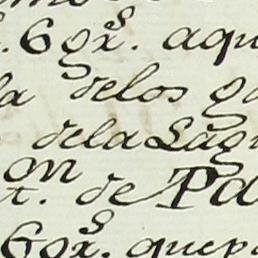 6 gx.s aqu
la delos ga
dela Lag
on
t. de Pa
6 gx.s quepa